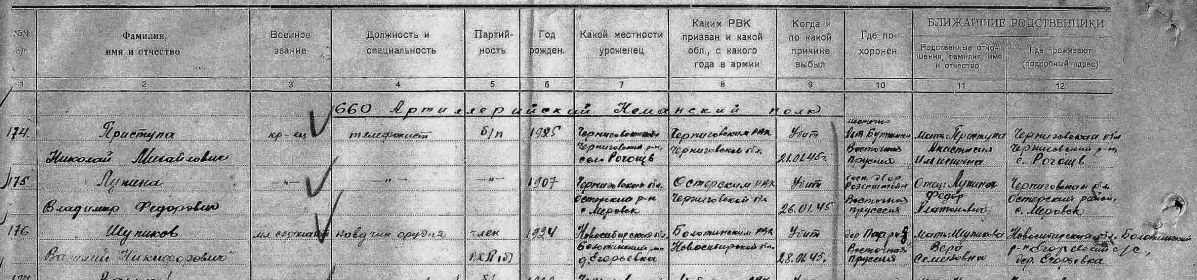 №№ п/п
Фамилия, имя и отчество
Военное звание
Должность и специальность
Партийность
Год рожден.
Какой местности уроженец
Каким РВК призван и какой обл., с какого года в армии
Когда и по какой причине выбыл
Где похоронен
БЛИЖАЙШИЕ РОДСТВЕННИКИ
Родственные отношения, фамилия, имя и отчество
Где проживают (подробный адрес)
1 2 3 4 5 6 7 8 9 10 11 12
660 Артиллерийский Неманский полк
174 Приступа кр-ец телефонист б/п 1925 Черниговская Черниговским РВК Убит Мать: Приступа Черниговская обл.
Николай Михайлович Черниговский р-н село Рогощь Черниговской обл. 21.01.45г. Восточная Пруссия Анастасия Ильинична Черниговский р-н с. Рогощь
175 Лупина -"- -"- -"- 1907 Черниговская обл. Остерским РВК Убит Отец: Лупина Черниговская обл.
Владимир Федорович Остерский р-н Черниговской обл. 26.01.45 Восточная Пруссия Федор Остерский район,
176 Шупиков мл. сержант наводчик орудия член 1924 Новосибирская обл. Болотнинским РВК Убит Мать: Шупикова Новосибирская обл. Болотнинский
Василий Никифорович ВКП(б) Болотнинский р-н д. Егорьевка Новосибирской обл. 28.01.45г. Восточная Пруссия Вера Семеновна дер. Егорьевка